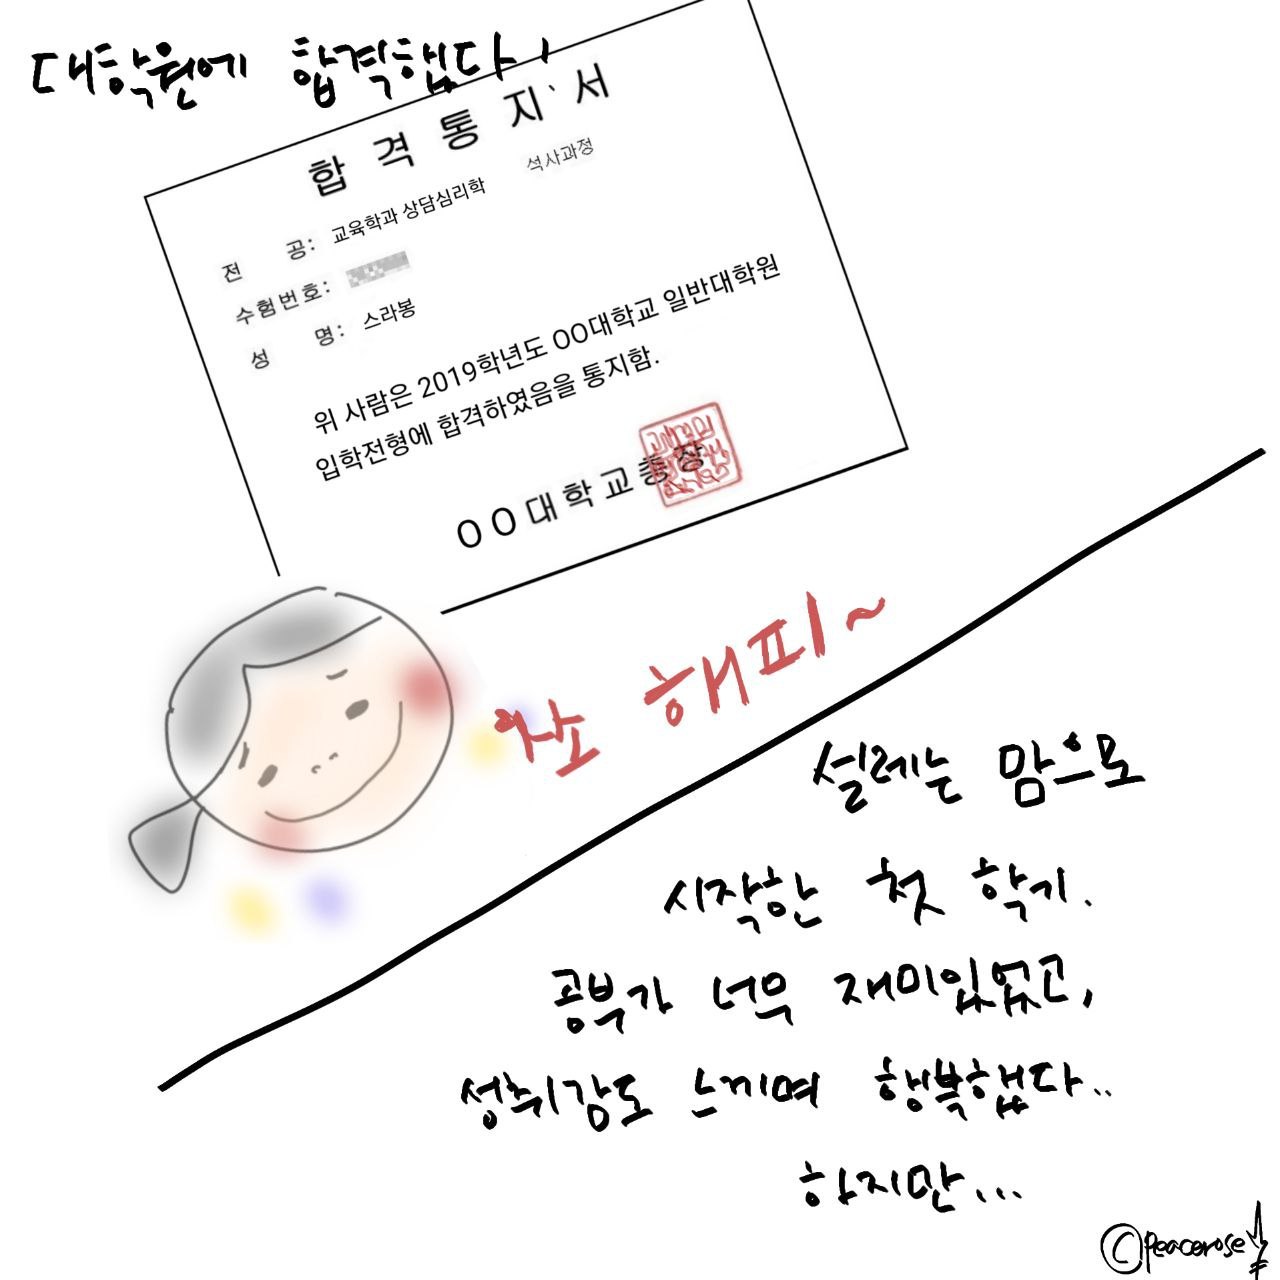 대학원에 합격했다!
합격통지서
석사과정
전 공: 교육학과 상담심리학
수험번호:
성 명: 스라봉
위 사람은 2019학년도 OO대학교 일반대학원
입학전형에 합격하였음을 통지함.
OO대학교총장
쏘 해피~
설레는 맘으로
시작한 첫 학기.
공부가 너무 재미있었고,
성취감도 느끼며 행복했다..
하지만...
©Peacerose